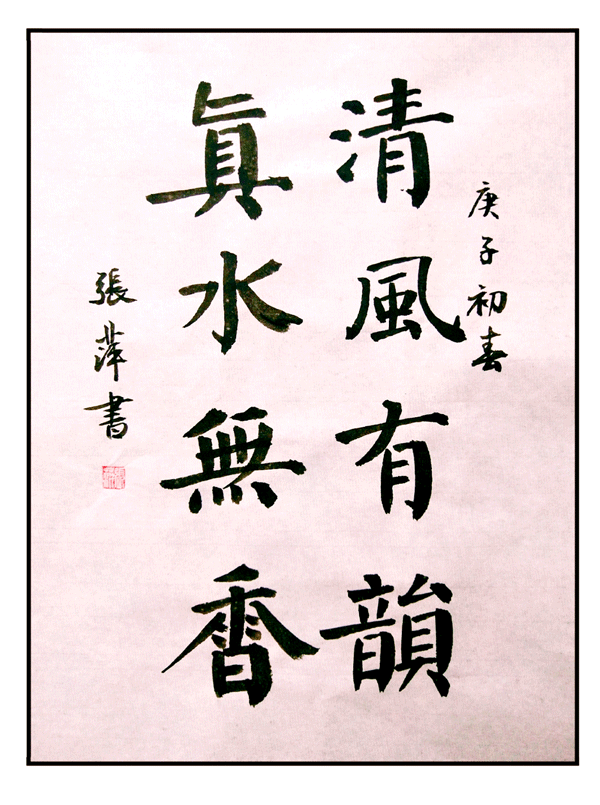 庚子初春
清風有韻
真水無香
張萍書